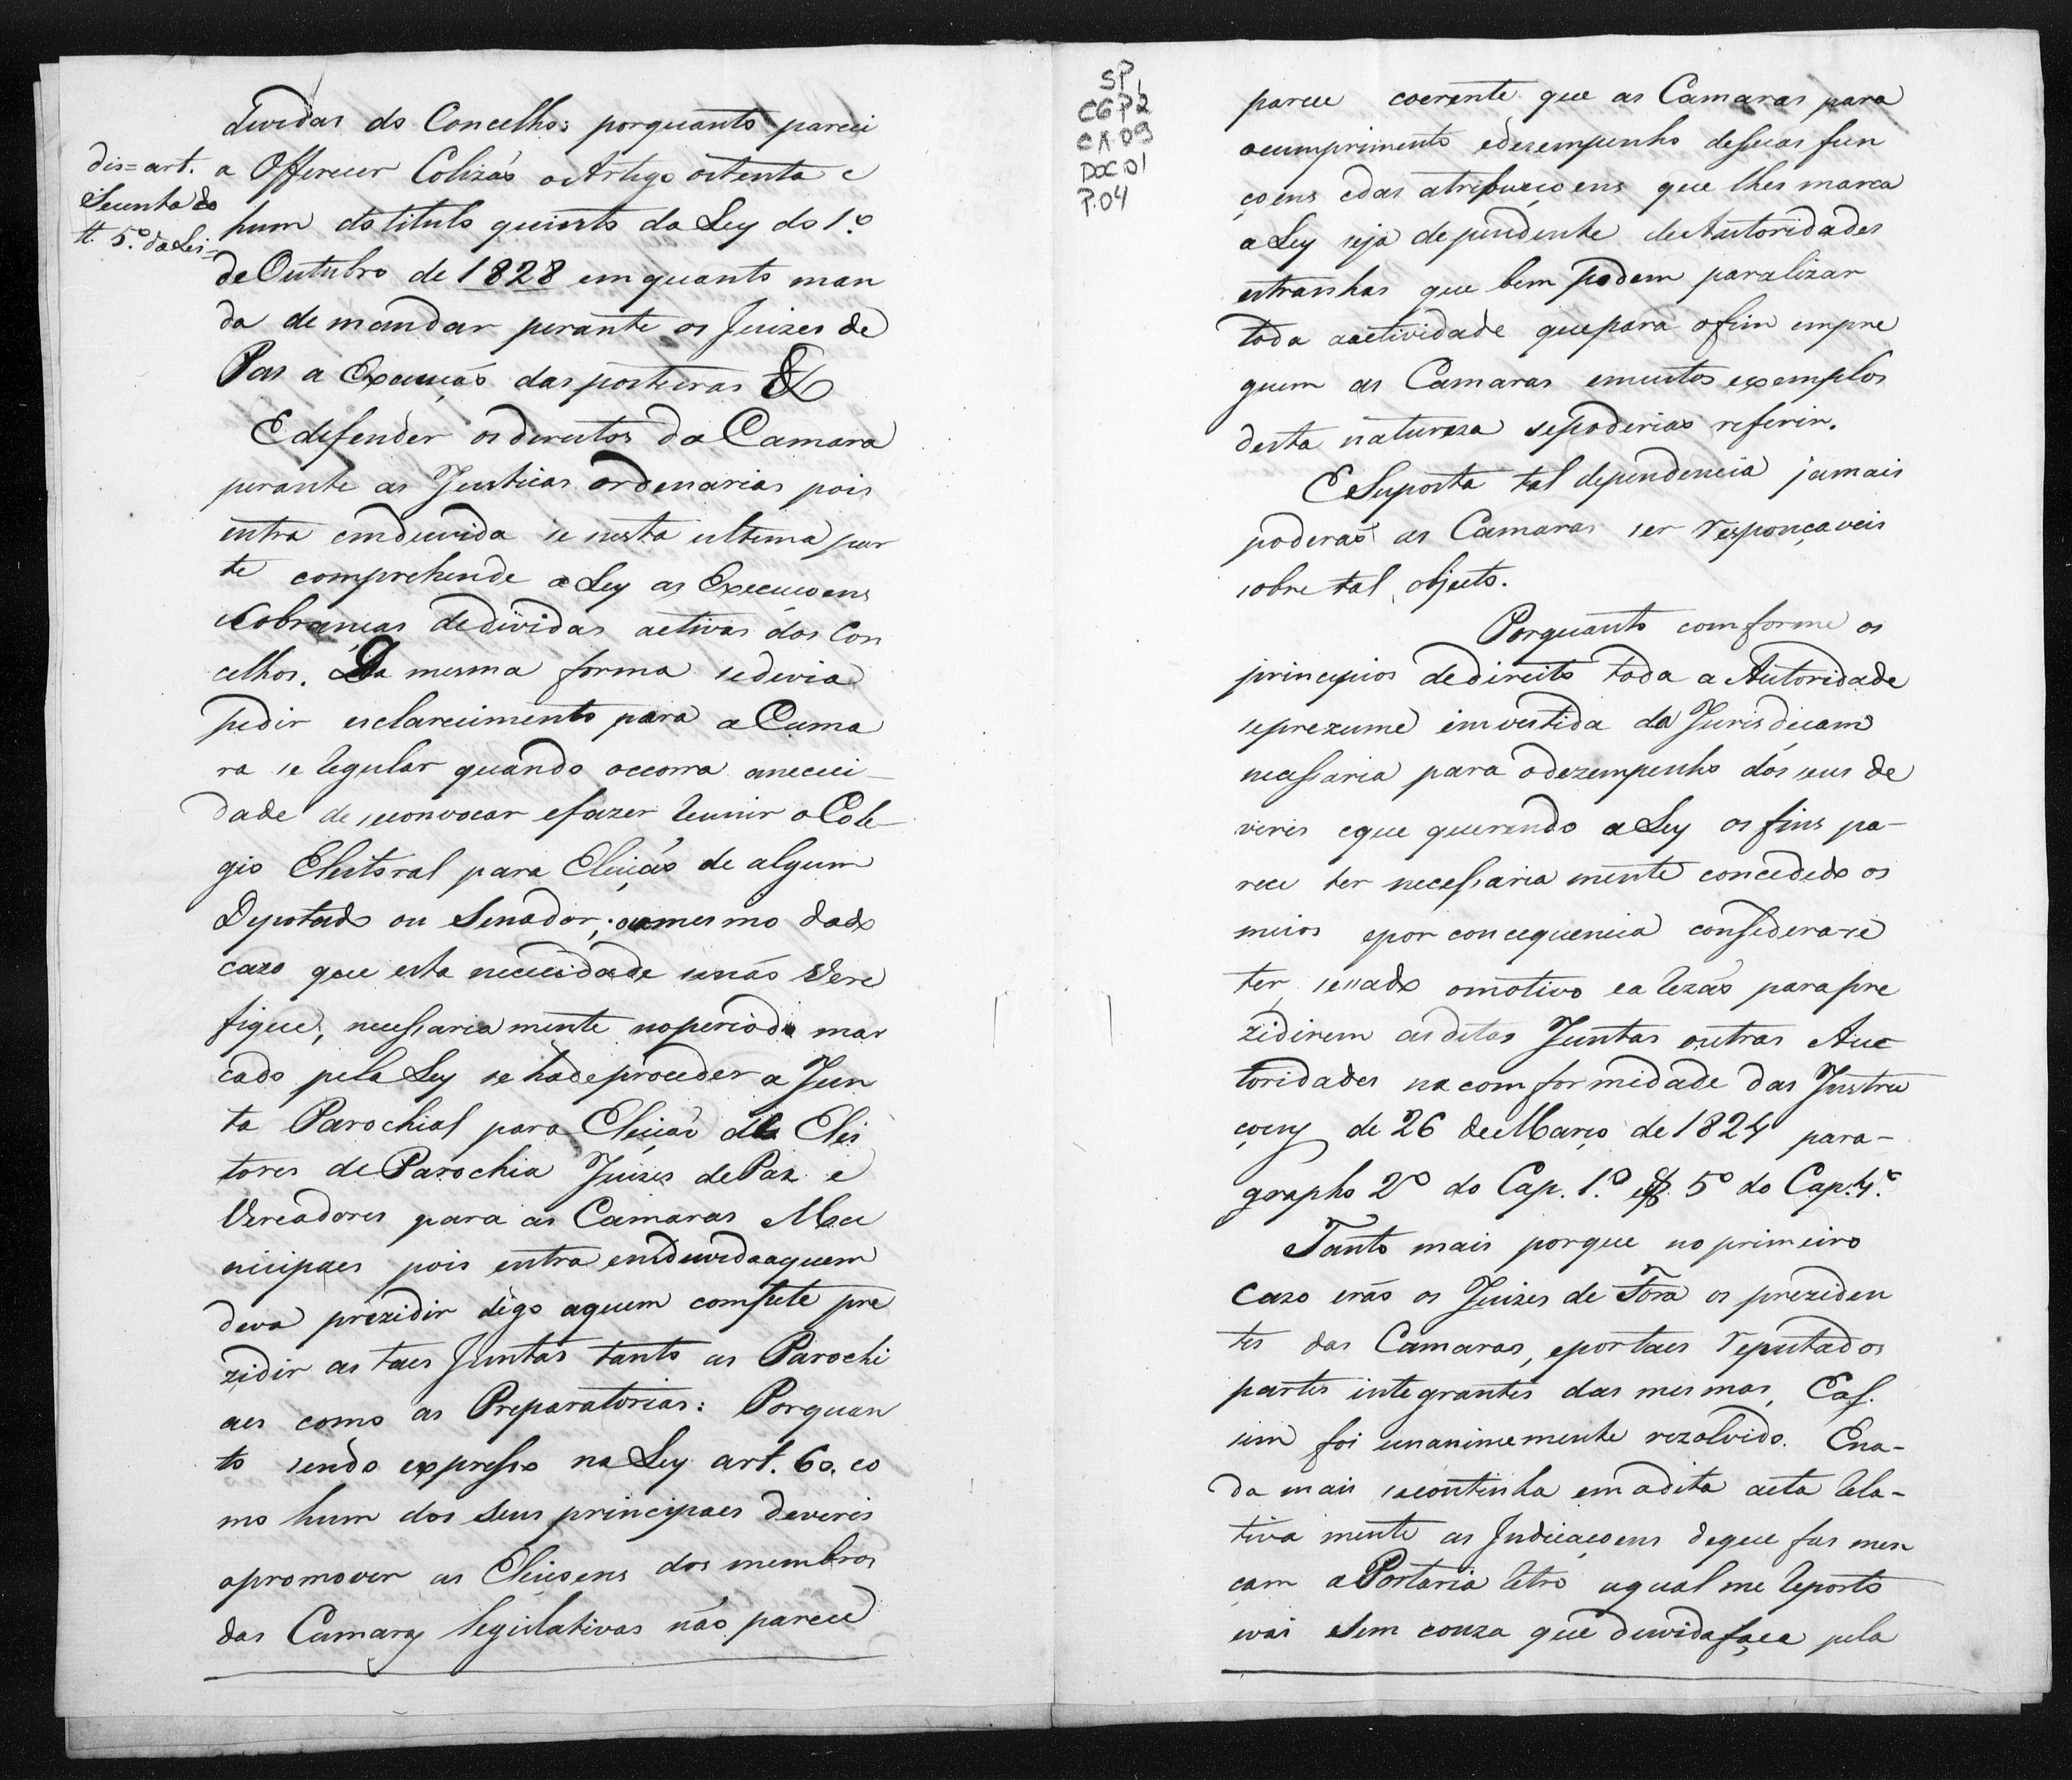 duvidas do Concelho: porquanto pareci
a Offerecer Colizáo o Artigo oitenta e
dis=art.
Secenta do
tt. 5.º da Lei=
hum do titulo quinto da Ley do 1.º
de Outubro de 1828 em quanto man
da demandar perante os Juizes de
Pas a Execuçáo das posturas &
E defender os direitos da Camara
perante as Justicas ordenarias pois
entra emduvida se nesta ultima par
te comprehende a Ley as Execucoens
e Cobrancas dedividas activas dos Con
celhos. Da mesma forma sedevia
pedir esclarecimento para a Cama
ra se Regular quando occorra anececi-
dade de seconvocar efazer Reunir o Cole-
gio Eleitoral para Eleiçáo de algum
Deputado ou Senador; ou mesmo dado
cazo que esta necicidade senáo Vere
fique, necessariamente noperiodo mar
cado pela Ley se hadeproceder a Jun
ta Parochial para Eleiçáo de Elei
tores de Parochia Juizes de Paz e
Vereadores para as Camaras Mu
nicipaes pois entra emduvida aquem
deva prezidir dígo aquem compete pre
zidir as taes Juntas tanto as Parochi
aes como as Preparatorias: Porquan
to sendo expresso na Ley art. 60. co
mo hum dos seus principaes deveres
apromover as Eleicoens dos membros
das Camaras legislativas náo parece
SP,
CGP2
CX 09
DOC 01
P.04
parece coerente que as Camaras para
ocumprimento edezempenho desuas fun
çoens edas atribuiçoens que lhes marca
a Ley seja dependente de Autoridades
estranhas que bem podem paralizar
toda aactividade quepara ofim empre
guem as Camaras emuitos exemplos
desta natureza sepoderiáo referir.
E Suposta tal dependencia jamais
poderáo as Camaras ser responçaveis
sobre tal objecto.
Porquanto comforme os
principios dedireito toda a Autoridade
seprezume imvestida da Jurisdicam
necessaria para odezempenho dos seus de
veres eque querendo a Ley os fins pa-
rece ter necessariamente concedido os
meios epor concequencia considerase
ter sessado omotivo ea Rezáo parapre
zidirem asditas Juntas outras Auc
toridades na comformidade das Instru
çoens de 26 de Março de 1824 para-
grapho 2º do Cap. 1.º e § 5º do Cap. 4.º
Tanto mais porque no primeiro
Cazo eráo os Juizes de Fora os preziden
tes das Camaras, eportaes reputados
partes integrantes das mesmas, E as.
sim foi unanimemente rezolvido. Ena-
da mais secontinha em adita acta Rela-
tiva mente as Indicacoens deque fas men
çam a Portaria Retro aqual me Reporto
evai sem couza que duvidafaça pela